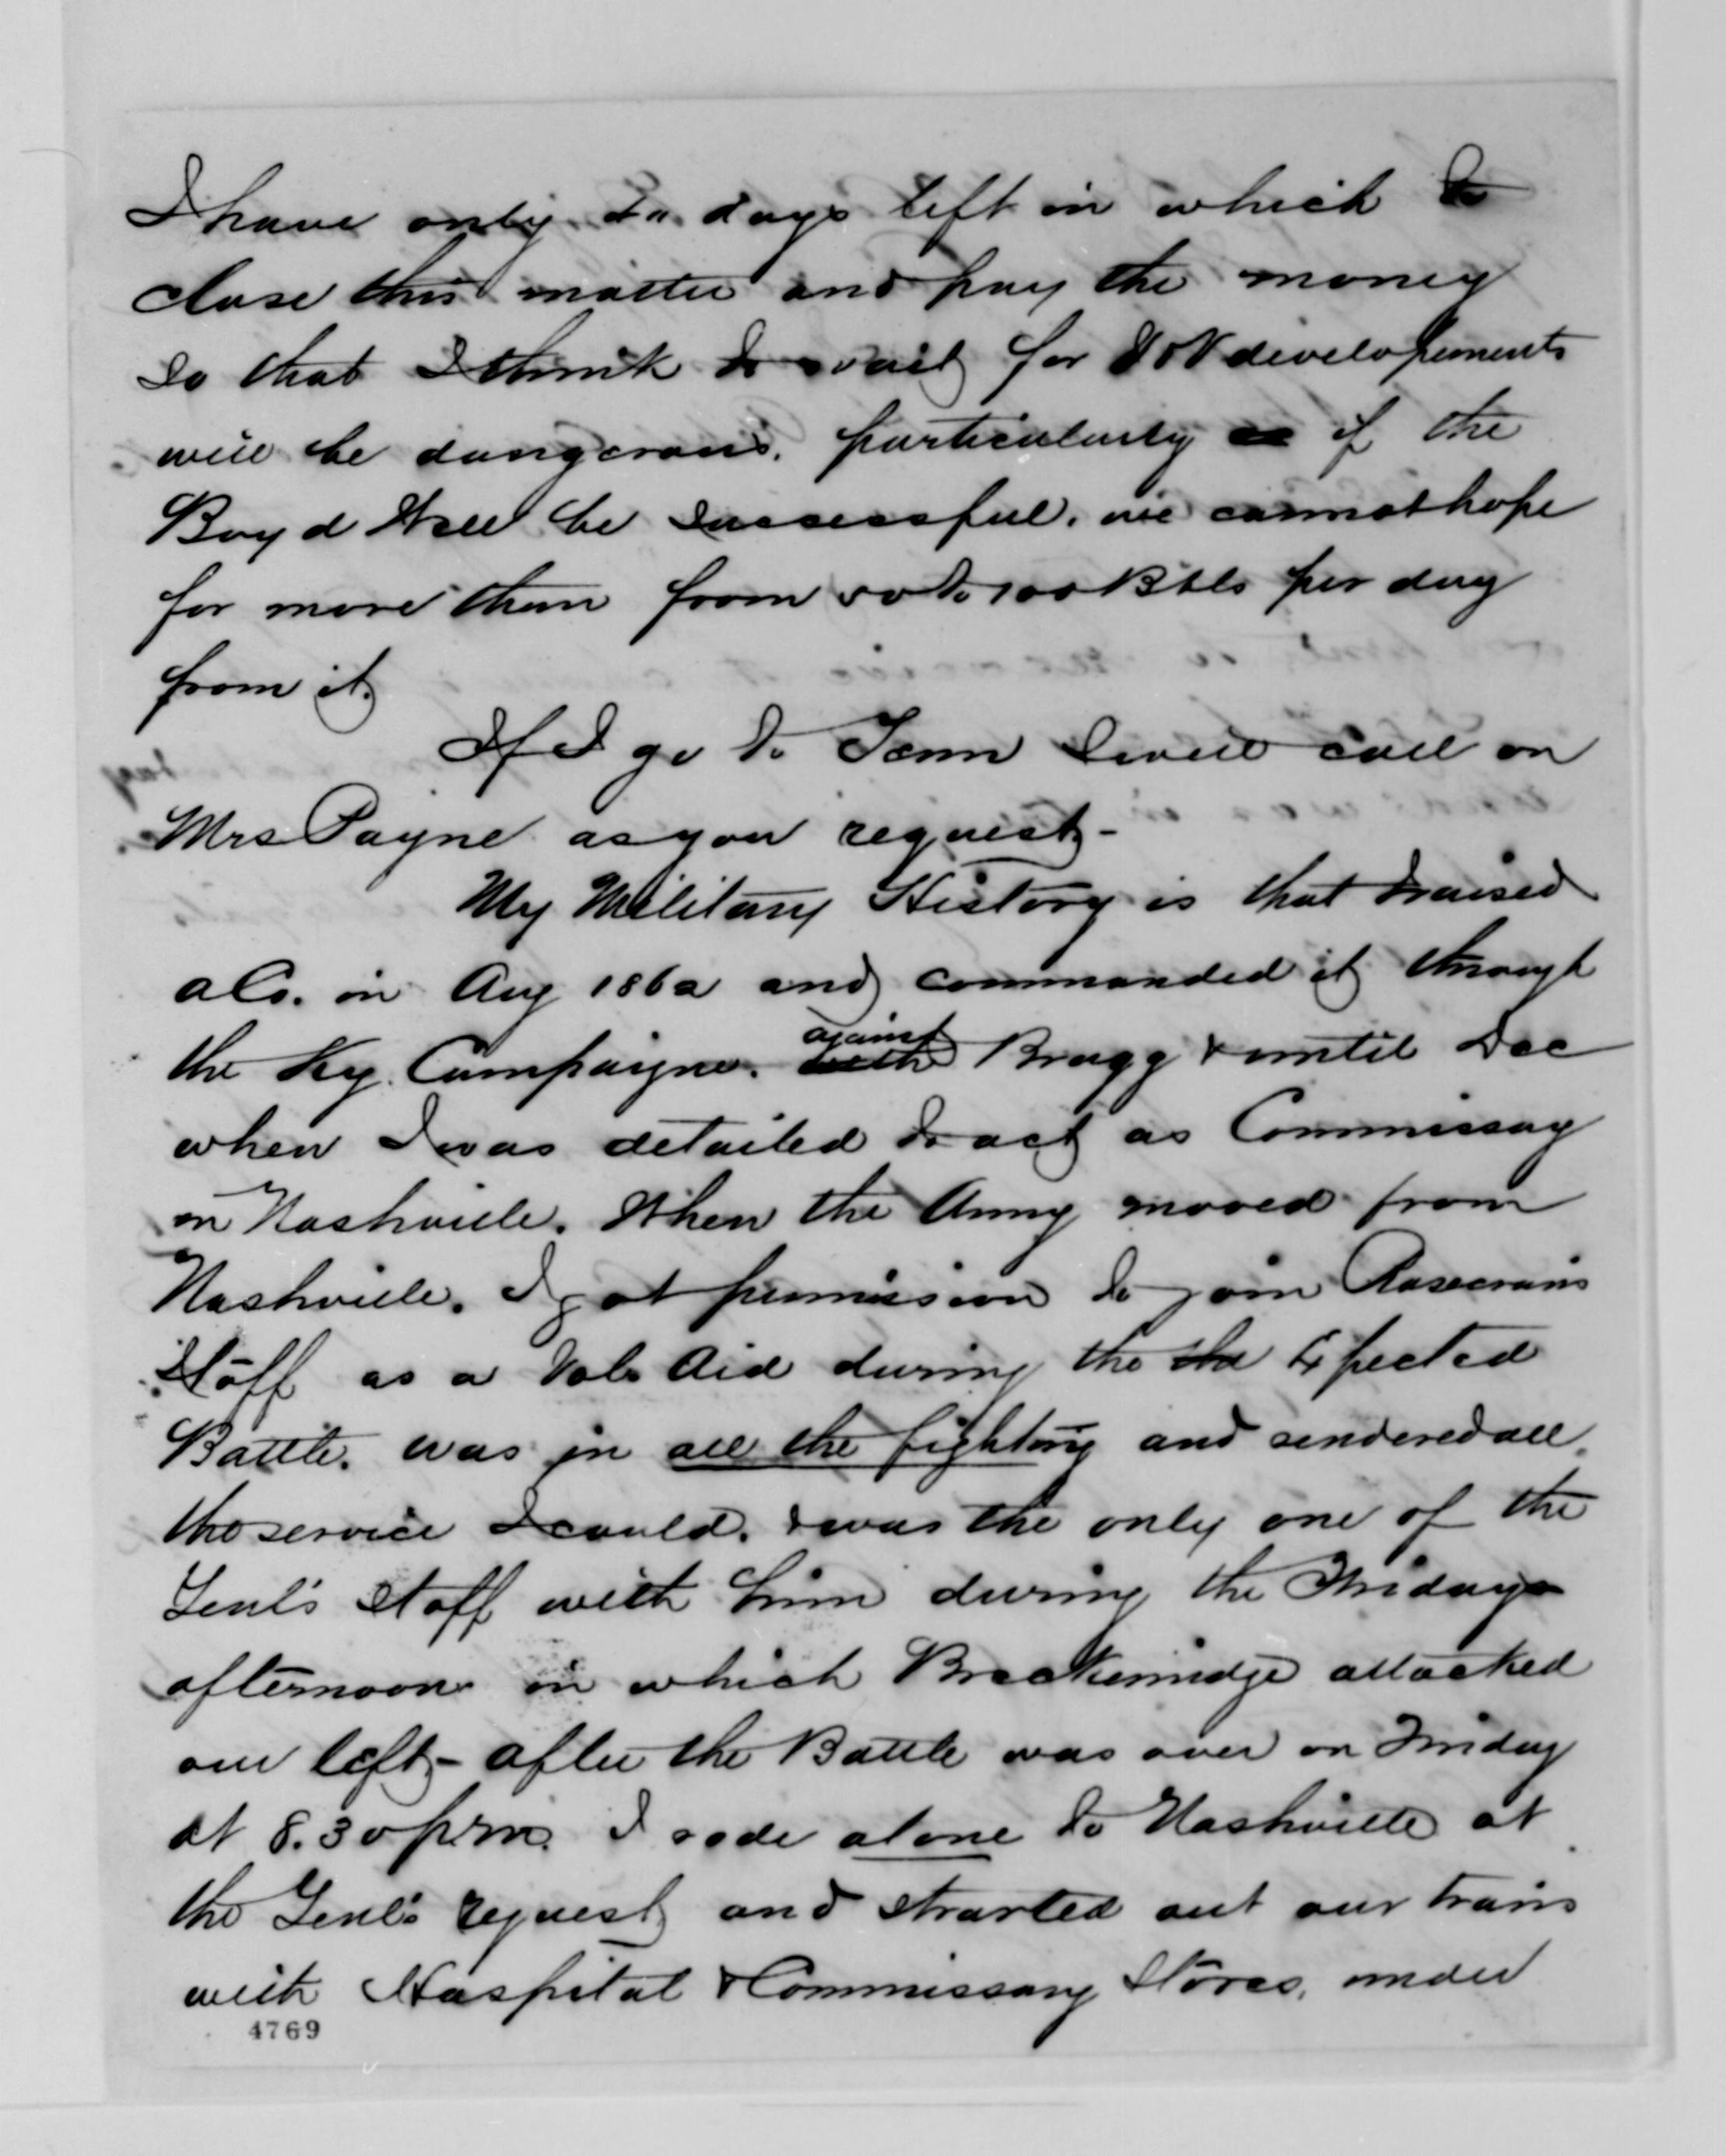 I have only days left in which to
close this matter and pay the money
so that I think to wait for developements
will be dangerous. particularly if the
Boyd Well be successful. we cannot hope
for more than from 50 to 100 Bbls per day
from it.
If I go to Tenn I will call on
Mrs Payne as you request -
My Military History is that I raised
a Co. in Aug 1862 and commanded it through
the Ky. Campaigne. with against Bragg & until Dec
when I was detailed to act as Commissay
in Nashville. When the Army moved from
Nashville. I got permission to join Rosecrans
Staff as a Vol. Aid during the the Expected
Battle. was in all the fighting and rendered all
the service I could. & was the only one of the
Genl's Staff with him during the Friday
afternoon in which Breckenridge attacked
our left - after the Battle was over on Friday
at 8.30 p.m. I rode alone to Nashville at
the Genl's request and strarted out our train
with Hospital & Commissary Stores, under
4769